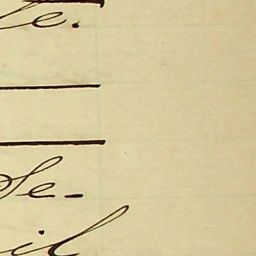 te.
Se-
il